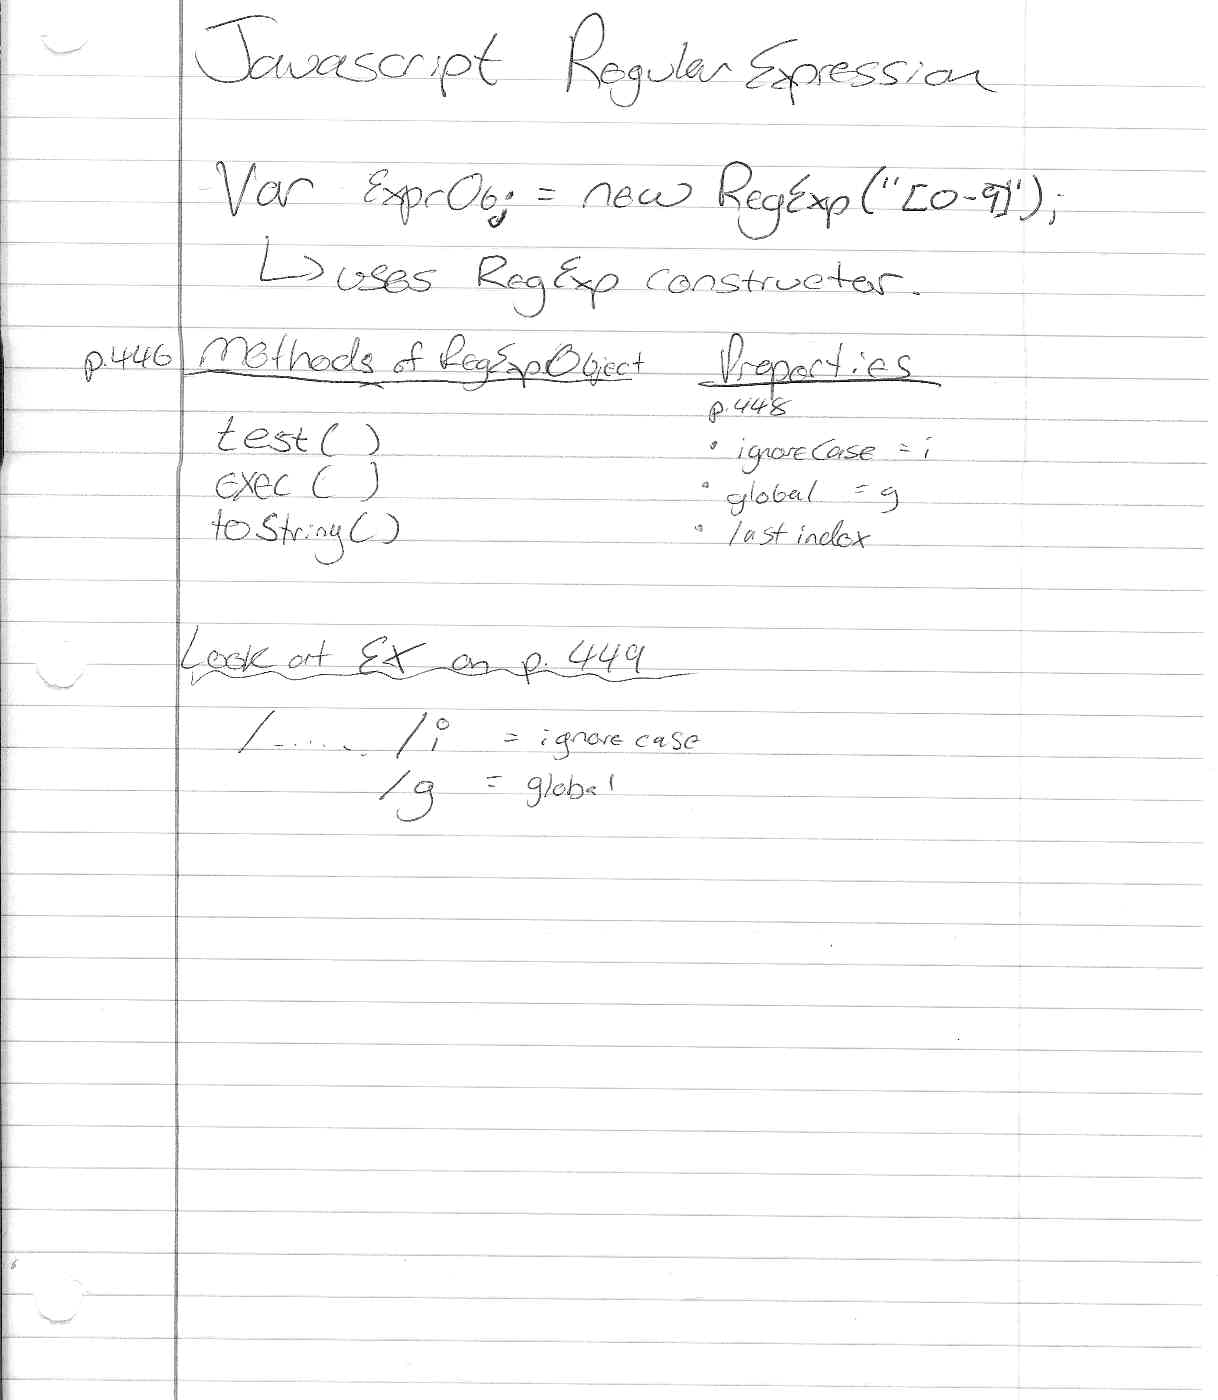 Javascript Regular Expression
Var ExprObj = new RegExp("[0-9]");
↳ uses RegExp constructer.
p.446 Methods of RegExpObject Properties
p.448
test() • ignoreCase = i
exec() • global = g
toString() • last index
Look at EX on p. 449
/........ /i = ignore case
/g = global